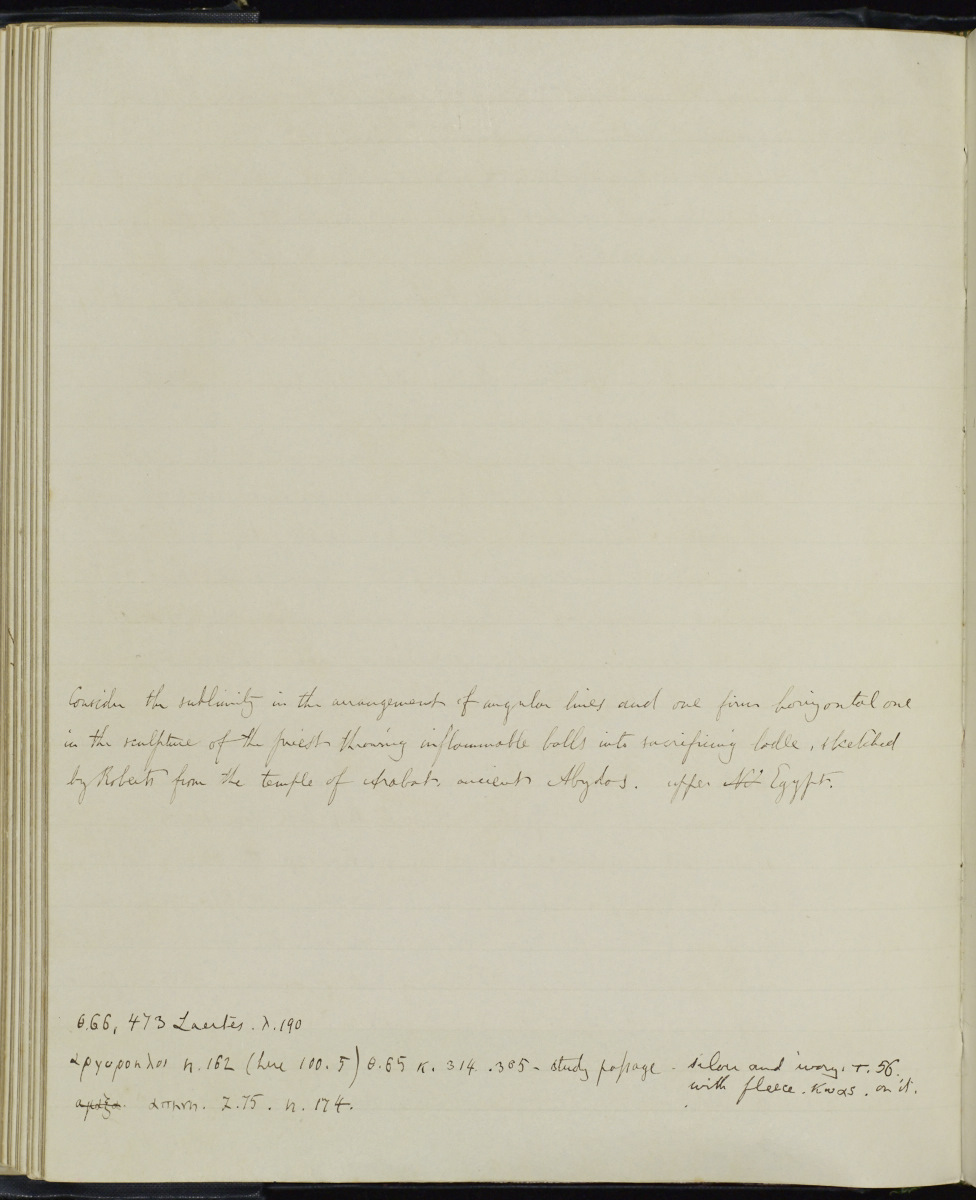 Consider the sublimity in the arrangement of angular lines and one firm horizontal one
in the sculpture of the priest throwing inflammable balls into sacrificing ladle, sketched
by Roberts from the temple of Arabat, ancient Abydos. upper Egypt.
θ.66, 473 Laertes. λ.190
αργυροηλοι η.162 (here 100.5) θ.65 κ. 314 . 365 - study passage - silver and ivory. τ. 56.
with fleece. κωας. on it.
αμαξα απηνη. Ζ.75. η. 174.